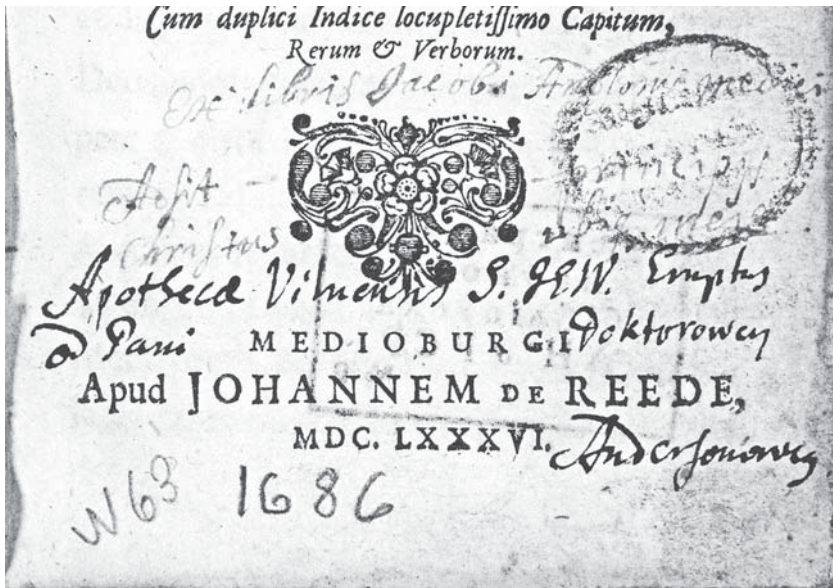 Cum duplici Indice locupletissimo Capitum,
Rerum & Verborum.
Ex libris Jacobi medici
Adsit
Christus
Apothecæ Vilnensis S. J. Emptus
od Pani Doktorowey
MEDIOBURGI
Apud JOHANNEM DE REEDE,
MDC. LXXXVI.
Andersonowey
W63 1686